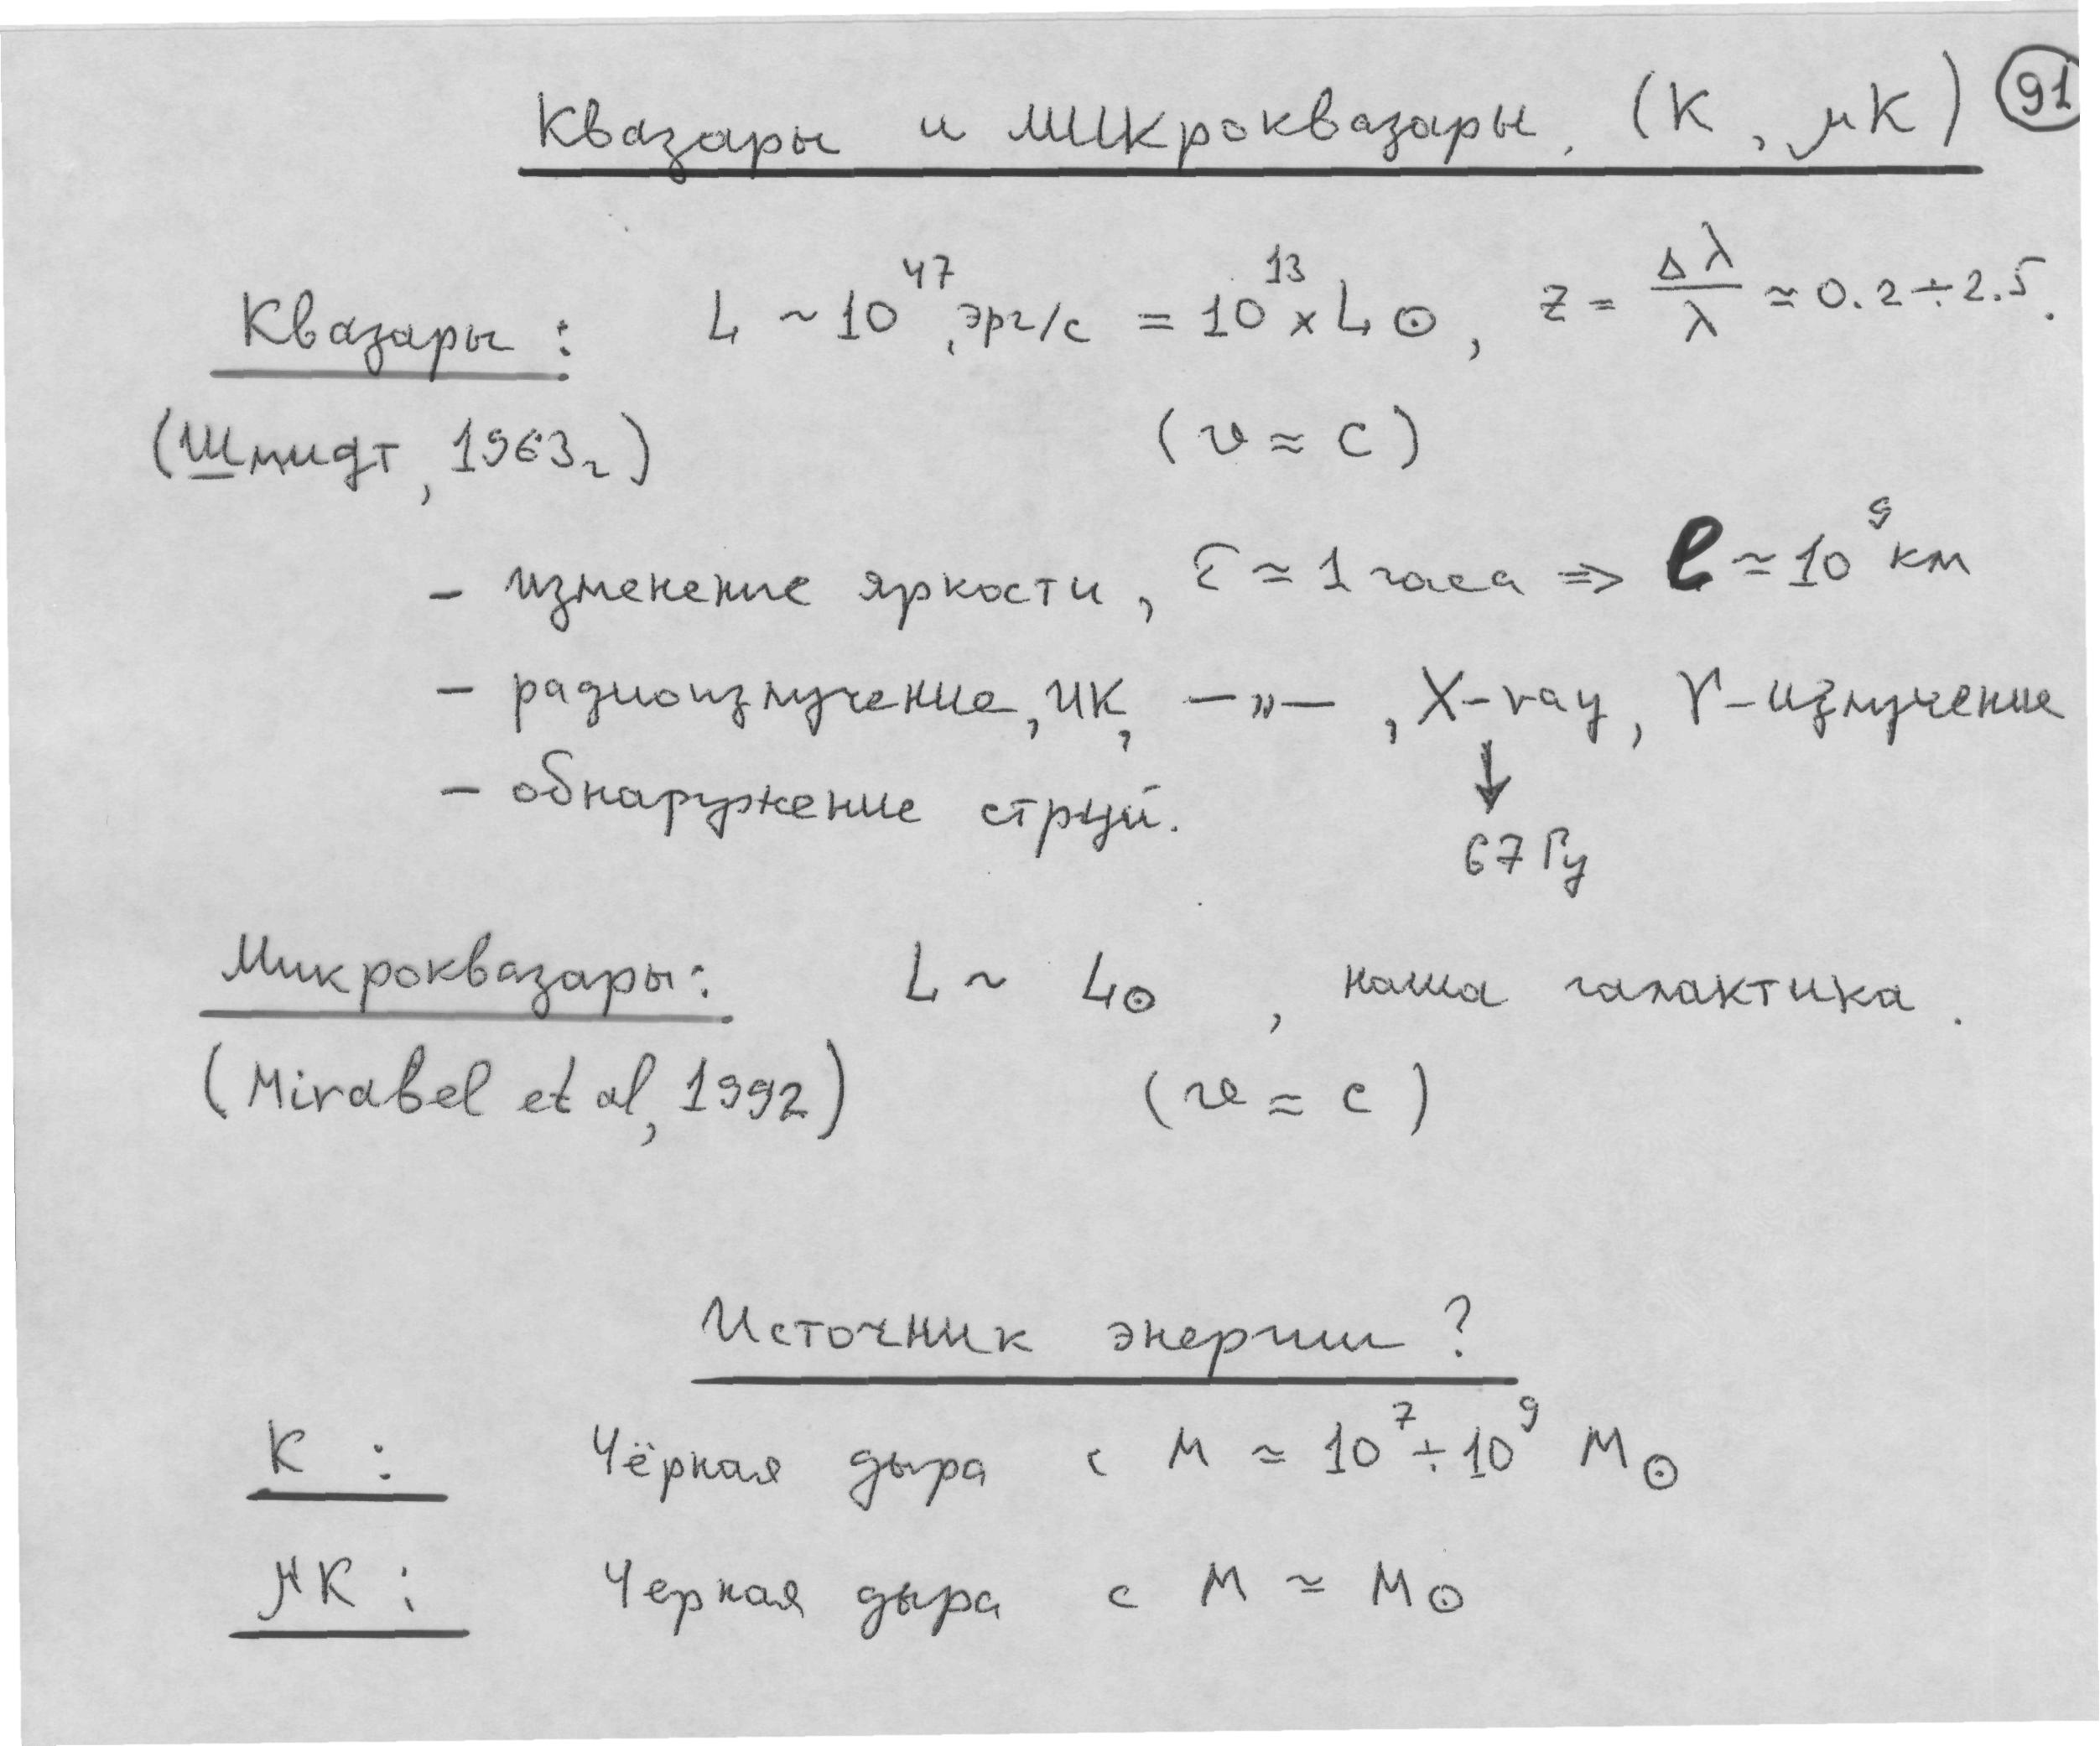 Квазары и микроквазары. (К, μК) 91
Квазары: L ~ 10^47 эрг/с = 10^13 × L⊙, z = Δλ/λ ≃ 0.2 ÷ 2.5.
(Шмидт, 1963г) (v ≈ c)
– изменение яркости, τ ≈ 1 часа ⇒ l ≃ 10^9 км
– радиоизлучение, ИК, —»—, X-ray, γ-излучение
↓
– обнаружение струй.
67 Гц
Микроквазары: L ~ L⊙, наша галактика.
(Mirabel et al, 1992) (v ≈ c)
Источник энергии?
К: Чёрная дыра с M ≃ 10^7 ÷ 10^9 M⊙
μК: Черная дыра с M ≃ M⊙